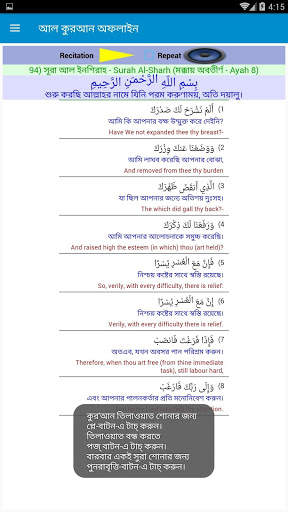 4:15
আল কুরআন অফলাইন
Recitation
Repeat
94) সূরা আল ইনশিরাহ - Surah Al-Sharh (মক্কায় অবতীর্ণ - Ayah 8)
بِسْمِ اللَّهِ الرَّحْمَٰنِ الرَّحِيمِ
শুরু করছি আল্লাহর নামে যিনি পরম করুণাময়, অতি দয়ালু।
1) أَلَمْ نَشْرَحْ لَكَ صَدْرَكَ
আমি কি আপনার বক্ষ উম্মুক্ত করে দেইনি?
Have We not expanded thee thy breast?-
2) وَوَضَعْنَا عَنكَ وِزْرَكَ
আমি লাঘব করেছি আপনার বোঝা,
And removed from thee thy burden
3) الَّذِي أَنقَضَ ظَهْرَكَ
যা ছিল আপনার জন্যে অতিশয় দুঃসহ।
The which did gall thy back?-
4) وَرَفَعْنَا لَكَ ذِكْرَكَ
আমি আপনার আলোচনাকে সমুচ্চ করেছি।
And raised high the esteem (in which) thou (art held)?
5) فَإِنَّ مَعَ الْعُسْرِ يُسْرًا
নিশ্চয় কষ্টের সাথে স্বস্তি রয়েছে।
So, verily, with every difficulty, there is relief:
6) إِنَّ مَعَ الْعُسْرِ يُسْرًا
নিশ্চয় কষ্টের সাথে স্বস্তি রয়েছে।
Verily, with every difficulty there is relief.
7) فَإِذَا فَرَغْتَ فَانصَبْ
অতএব, যখন অবসর পান পরিশ্রম করুন।
Therefore, when thou art free (from thine immediate
task), still labour hard,
8) وَإِلَىٰ رَبِّكَ فَارْغَب
এবং আপনার পালনকর্তার প্রতি মনোনিবেশ করুন।
কুরআন তিলাওয়াত শোনার জন্য
প্লে-বাটন-এ টাচ্ করুন।
তিলাওয়াত বন্ধ করতে
পজ্ বাটন-এ টাচ্ করুন।
বারবার একই সুরা শোনার জন্য
পুনরাবৃত্তি-বাটন-এ টাচ্ করুন।